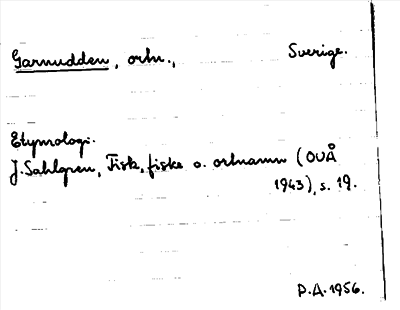 Garnudden, ortn., Sverige.
Etymologi.
J. Sahlgren, Fisk, fiske o. ortnamn (OUÅ
1943), s. 19.
P.A. 1956.